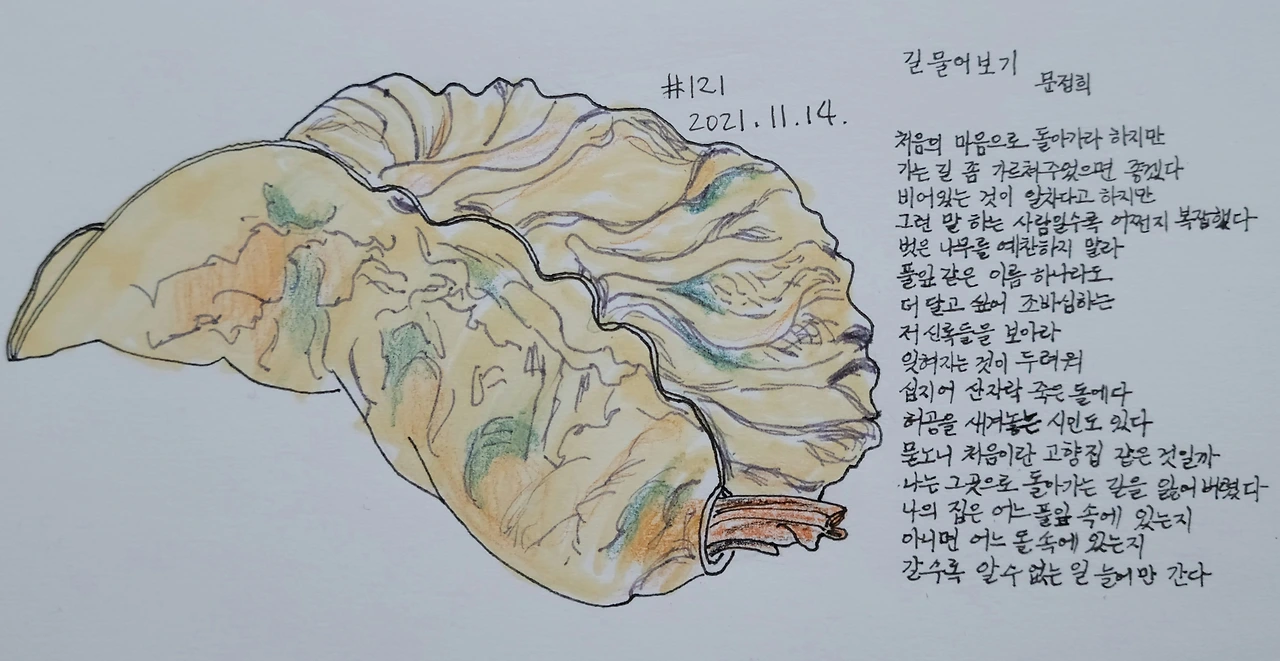 #121
2021.11.14.
길 물어보기
문정희
처음의 마음으로 돌아가라 하지만
가는 길 좀 가르쳐주었으면 좋겠다
비어있는 것이 알차다고 하지만
그런 말 하는 사람일수록 어쩐지 복잡했다
벗은 나무를 예찬하지 말라
풀잎 같은 이름 하나라도
더 달고 싶어 조바심하는
저 신록들을 보아라
잊혀지는 것이 두려워
심지어 산자락 죽은 돌에다
허공을 새겨놓는 시인도 있다
묻노니 처음이란 고향집 같은 것일까
나는 그곳으로 돌아가는 길을 잃어버렸다
나의 집은 어느 풀잎 속에 있는지
아니면 어느 돌 속에 있는지
갈수록 알 수 없는 일 늘어만 간다